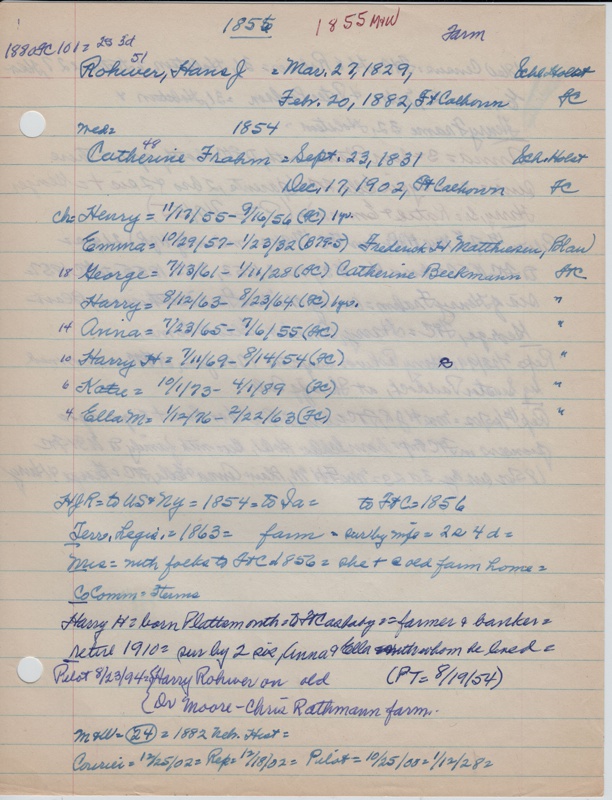 1856 1855 M&W
Farm
1880 FC 101 = 2s 3d
51
Rohwer, Hans J = Mar. 27, 1829, Sch. Holst
Feb. 20, 1882, Ft Calhoun FC
med = 1854
48
Catherine Frahm = Sept. 23, 1831 Sch. Holst
Dec. 17, 1902, Ft Calhoun FC
ch = Henry = 11/17/55 - 9/16/56 (FC) 1 yr.
Emma = 10/29/57 - 1/23/32 (B795) Frederick H Matthiesen, Blair
18 George = 7/13/61 - 1/11/28 (FC) Catherine Beckmann FC
Harry = 8/12/63 - 8/23/64 (FC) 1 yr. "
14 Anna = 7/23/65 - 7/6/55 (FC) "
10 Harry H = 7/11/69 - 8/14/54 (FC) s "
6 Katie = 10/1/73 - 4/1/89 (FC) "
4 Ella M = 1/12/76 - 2/22/63 (FC) "
HJR = to US & NY = 1854 = to Ia = to FtC = 1856
Terr. Legis. = 1863 = farm = sur by mfe = 2s 4d =
Mrs = with folks to FtC 1856 = she + s old farm home =
Co Comm = terms
Harry H = born Plattsmouth = to FtC as baby = farmer & banker =
retire 1910 = sur by 2 sis, Anna & Ella with whom he lived =
Pilot 8/23/94 = Harry Rohwer on old (PT = 8/19/54)
Dr Moore - Chris Rathmann farm.
M&W = 24 = 1882 Neb. Hist =
Courier = 12/25/02 = Rep = 12/18/02 = Pilot = 10/25/00 = 1/12/28 =